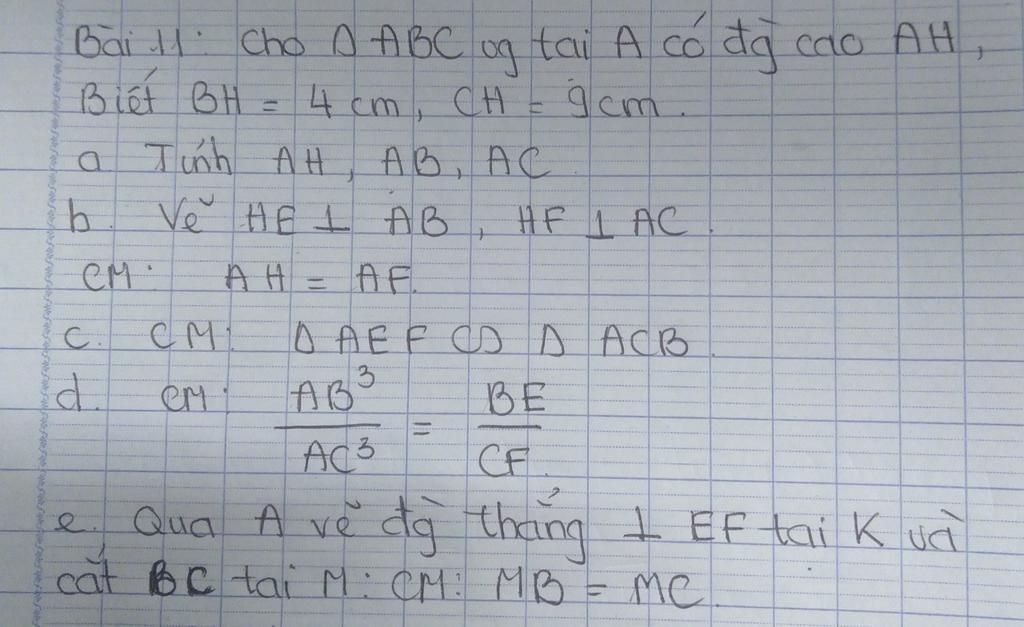 Bài 11: Cho Δ ABC vg tai A có đg cao AH,
Biết BH = 4 cm, CH = 9 cm.
a Tính AH, AB, AC
b. Vẽ HE ⊥ AB, HF ⊥ AC.
CM: AH = AF.
c. CM: Δ AEF ∽ Δ ACB.
d. CM: AB³/AC³ = BE/CF.
e. Qua A vẽ đg thẳng ⊥ EF tai K và
cắt BC tai M: CM: MB = MC.